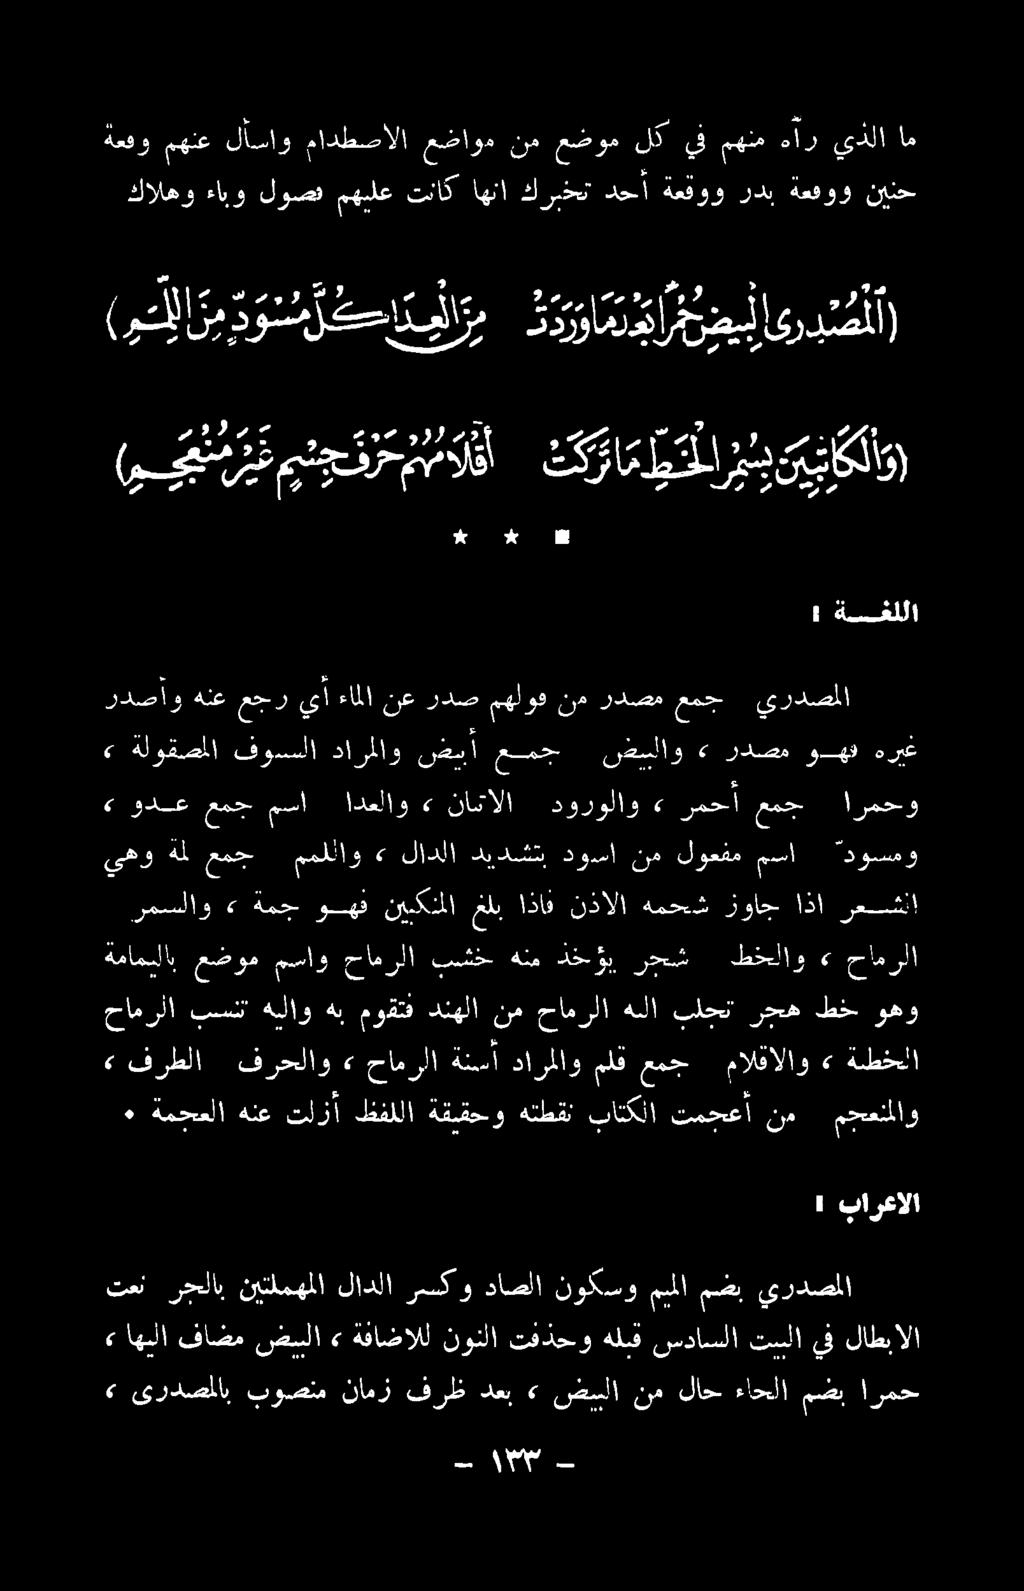 ما الذي رآه منهم في كل موضع من مواضع الاصطدام واسأل عنهم وقعة
حنين ووقعة بدر ووقعة أحد تخبرك انها كانت عليهم فصول وباء وهلاك
(اَلْمُصْدِرِى الْبِيضِ حُمْرًا بَعْدَ مَا وَرَدَتْ مِنَ الْعِدَا كُلَّ مُسْوَدٍّ مِنَ اللِّمَمِ)
(وَالْكَاتِبِينَ بِسُمْرِ الْخَطِّ مَا تَرَكَتْ أَقْلَامُهُمْ حَرْفَ جِسْمٍ غَيْرَ مُنْعَجِمِ)
اللغــة :
المصدري جمع مصدر من قولهم صدر عن الماء أي رجع عنه وأصدر
غيره فهـو مصدر ، والبيض جمـع أبيض والمراد السيوف المصقولة ،
وحمرا جمع أحمر ، والورود الاتيان ، والعدا اسم جمع عـدو ،
ومسودّ اسم مفعول من اسود بتشديد الدال ، واللمم جمع لمة وهي
الشـعر اذا جاوز شحمه الاذن فاذا بلغ المنكبين فهـو جمة ، والسمر
الرماح ، والخط شجر يؤخذ منه خشب الرماح واسم موضع باليمامة
وهو خط هجر تجلب اليه الرماح من الهند فتقوم به واليه تنسب الرماح
الخطية ، والاقلام جمع قلم والمراد أسنة الرماح ، والحرف الطرف ،
والمنعجم من أعجمت الكتاب نقطته وحقيقة اللفظ أزلت عنه العجمة •
الاعراب :
المصدري بضم الميم وسكون الصاد وكسر الدال المهملتين بالجر نعت
الابطال في البيت السادس قبله وحذفت النون للاضافة ، البيض مضاف اليها ،
حمرا بضم الحاء حال من البيض ، بعد ظرف زمان منصوب بالمصدرى ،
– ١٣٣ –